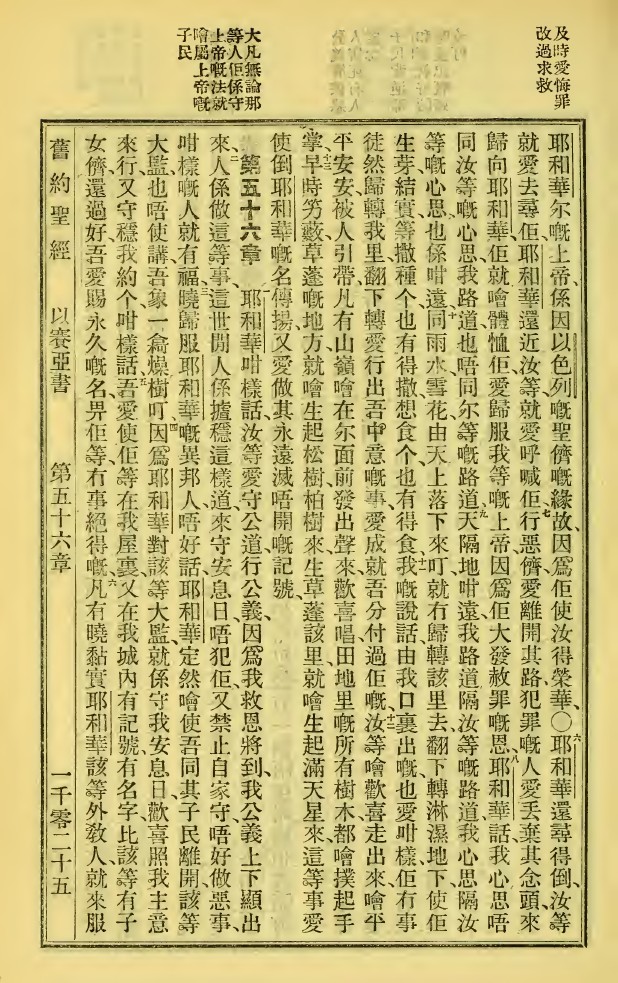 及時愛悔罪
改過求救
耶和華尔嘅上帝、係因以色列嘅聖儕嘅緣故、因爲佢使汝得榮華、〇六耶和華還尋得倒、汝等
就愛去尋佢、耶和華還近汝等、就愛呼喊佢、七行惡儕愛離開其路、犯罪嘅人愛丟棄其念頭、來
歸向耶和華、佢就噲體恤佢、愛歸服我等嘅上帝、因爲佢大發赦罪嘅恩、八耶和華話、我心思唔
同汝等嘅心思、我路道也唔同尔等嘅路道、九天隔地咁遠、我路道隔汝等嘅路道、我心思隔汝
等嘅心思、也係咁遠、十同雨水雪花由天上落下來叮、就冇歸轉該里去、翻下轉淋濕地下、使佢
生芽結實、等撒種个也有得撒、想食个也有得食、十一我嘅說話由我口裏出嘅、也愛咁樣、佢冇事
徒然歸轉我里、翻下轉愛行出吾中意嘅事、愛成就吾分付過佢嘅、十二汝等噲歡喜走出來、噲平
平安安被人引帶、凡有山嶺噲在尔面前發出聲來歡喜唱、田地里嘅所有樹木都噲撲起手
掌、十三早時竻藪草蓬嘅地方、就噲生起松樹柏樹來、生草蓬該里、就噲生起滿天星來、這等事愛
使倒耶和華嘅名傳揚、又愛做其永遠滅唔開嘅記號、
大凡無論那
等人佢係守
上帝嘅法就
噲屬上帝嘅
子民
第五十六章 耶和華咁樣話、汝等愛守公道、行公義、因爲我救恩將到、我公義上下顯出
來、二人係做這等事、這世間人係攎穩這樣道、來守安息日唔犯佢、又禁止自家守唔好做惡事、
咁樣嘅人就有福、三曉歸服耶和華嘅異邦人、唔好話、耶和華定然噲使吾同其子民離開、該等
大監也唔使講、吾象一翕燥樹叮、四因爲耶和華對該等大監、就係守我安息日、歡喜照我主意
來行、又守穩我約个、咁樣話、五吾愛使佢等在我屋裏、又在我城內、有記號有名字、比該等有子
女儕還過好、吾愛賜永久嘅名畀佢等、冇事絕得嘅、六凡有曉黏實耶和華該等外敎人、就來服
舊約聖經 以賽亞書 第五十六章 一千零二十五